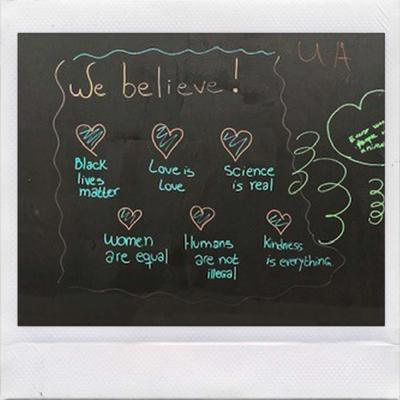 UA
We believe!
Black
lives
matter
Love is
Love
Science
is real
Women
are equal
Humans
are not
illegal
Kindness
is everything.